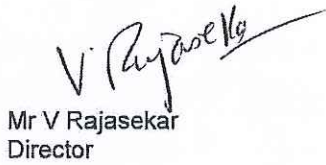 V. Rajasekar
Mr V Rajasekar
Director